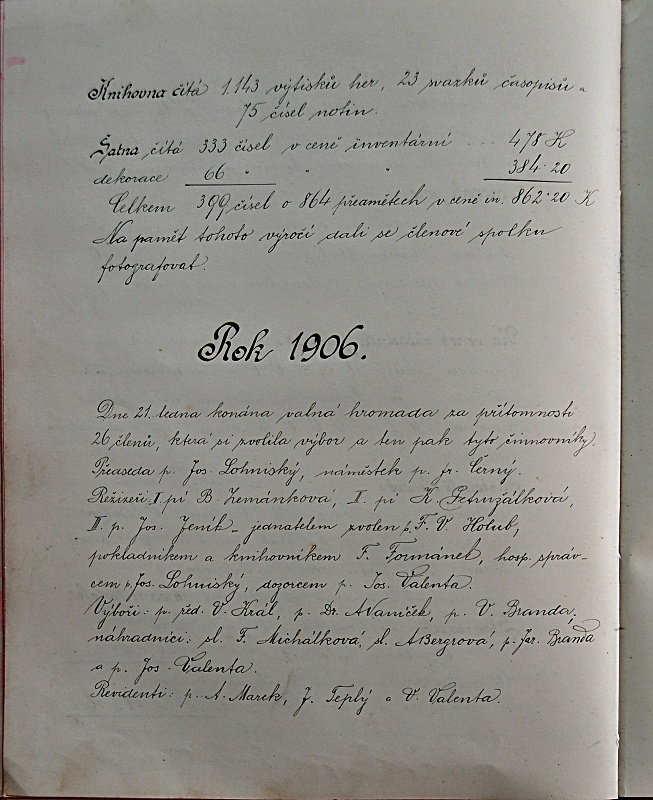 Knihovna čítá 1.143 výtisků her, 23 svazků časopisů a
75 čísel notin.
Šatna čítá 333 čísel v ceně inventární ... 478 K
dekorace 66 " " " 384·20
Celkem 399 čísel o 864 předmětech v ceně in. 862·20 K
Na paměť tohoto výročí dali se členové spolku
fotografovat.
Rok 1906.
Dne 21. ledna konána valná hromada za přítomnosti
26 členů, která si zvolila výbor a ten pak tyto činnovníky.
Předseda p. Jos. Lohniský, náměstek p. fr. Černý.
Režiséři: I pí B. Zemánkova, I. pí K. Petružálková,
II. p. Jos. Jeník – jednatelem zvolen p. F. V. Holub,
pokladníkem a knihovníkem F. Formánek, hosp. správ-
cem p. Jos. Lohniský, dozorcem p. Jos. Valenta.
Výboři: p. řed. V. Král, p. Dr. A Vaníček, p. V. Branda,
náhradníci: sl. F. Michálková, sl. A Bergrová, p. Jar. Branda
a p. Jos. Valenta.
Revidenti: p. A. Marek, J. Teplý a V. Valenta.